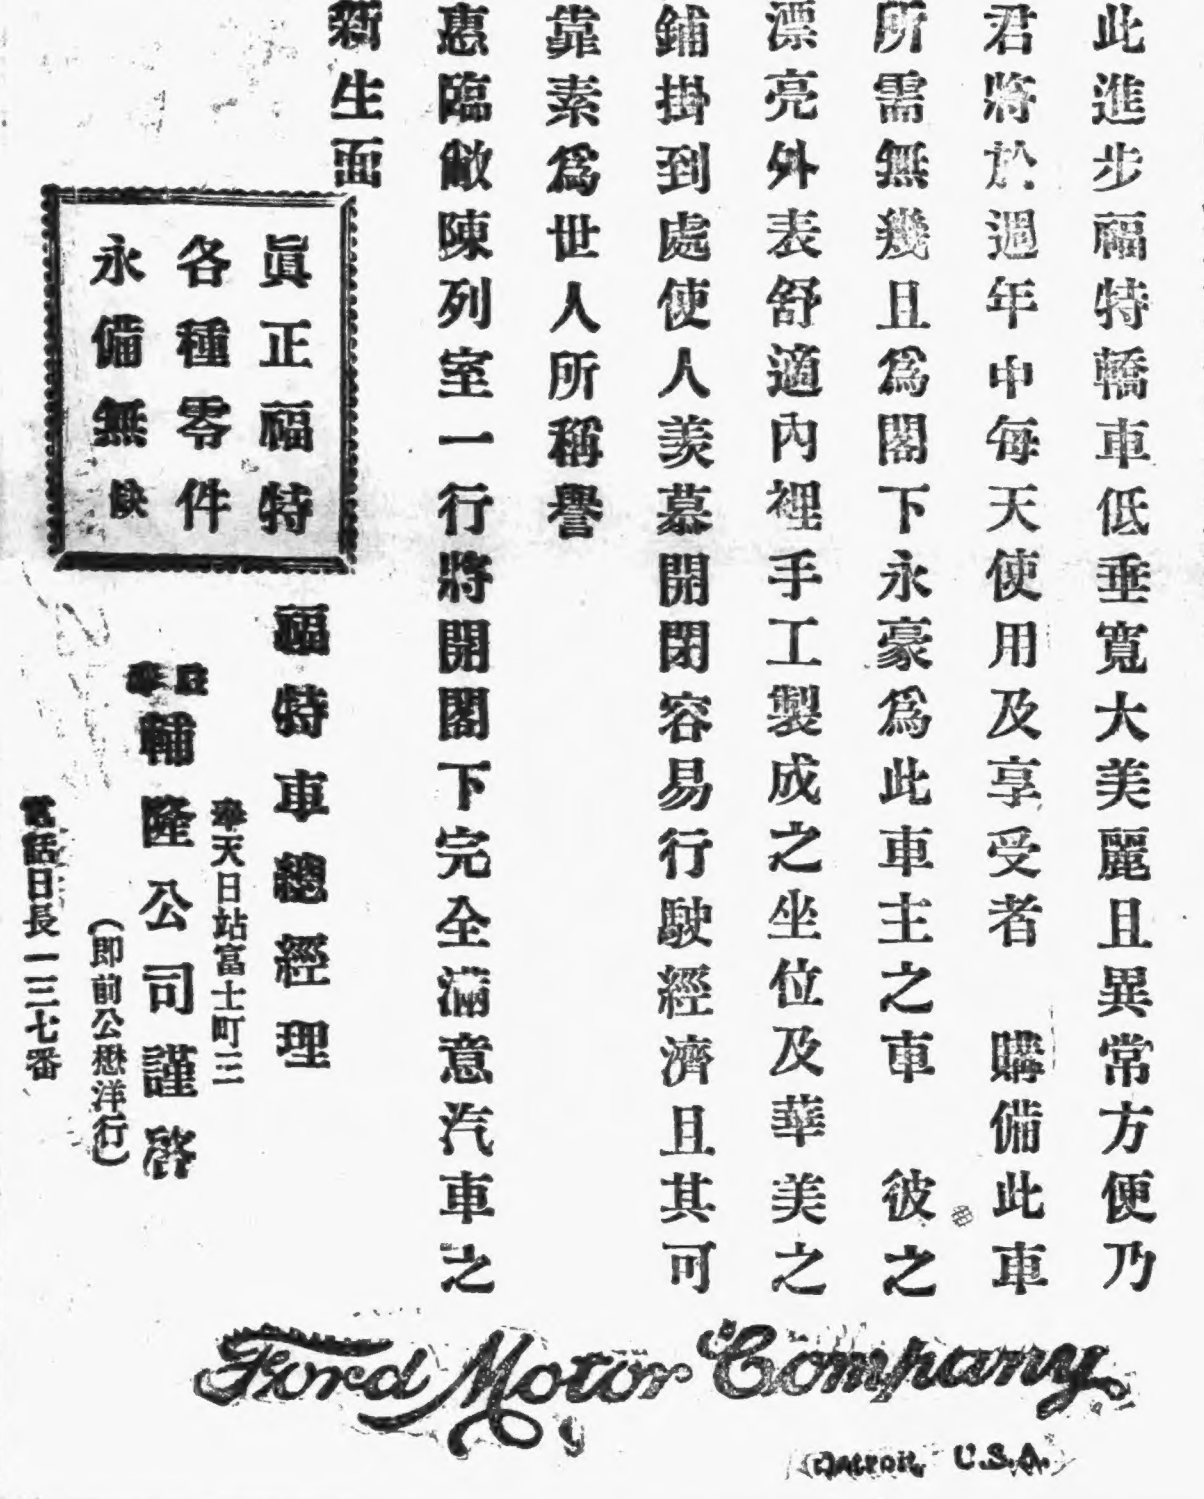 此進步福特轎車低垂寬大美麗且異常方便乃
君將於週年中每天使用及享受者 購備此車
所需無幾且爲閣下永豪爲此車主之車 彼之
漂亮外表舒適內裡手工製成之坐位及華美之
鋪掛到處使人羨慕開閉容易行駛經濟且其可
靠素爲世人所稱譽
惠臨敝陳列室一行將開閣下完全滿意汽車之
新生面
眞正福特
各種零件
永備無缺
福特車總經理
奉天日站富士町三
輔隆公司謹啓
(即前公懋洋行)
電話日長一三七番
Ford Motor Company
Detroit, U.S.A.